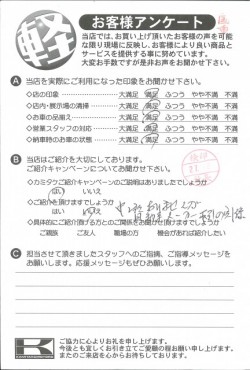 軽
お客様アンケート
当店では、お買い上げ頂いたお客様の声を可能
な限り現場に反映し、お客様により良い商品と
サービスを提供する事に努めています。
大変お手数ですが是非お声をお聞かせ下さい。
A 当店を実際にご利用になった印象をお聞かせ下さい。
◇店の印象 大満足 満足 ふつう やや不満 不満
◇店内・展示場の清掃 大満足 満足 ふつう やや不満 不満
◇お車の品揃え 大満足 満足 ふつう やや不満 不満
◇営業スタッフの対応 大満足 満足 ふつう やや不満 不満
◇納車時のお車の状態 大満足 満足 ふつう やや不満 不満
B 当店はご紹介を大切にしております。
ご紹介キャンペーンについてお聞かせ下さい。
◇カミタケご紹介キャンペーンのご説明はありましたでしょうか
はい いいえ
◇ご紹介を頂けますでしょうか
はい いいえ
◇具体的にご紹介頂ける方とのご関係をお聞かせ頂けますでしょうか
ご親族 ご友人 職場の方 機会があれば紹介したい
C 担当させて頂きましたスタッフへのご指摘、ご指導メッセージを
お願いします。応援メッセージもぜひお願いします。
K
ご協力に心よりお礼を申し上げます。
今後とも宜しくお引き立てご愛顧の程お願い申し上げます。
またのご来店を心からお待ちしております。